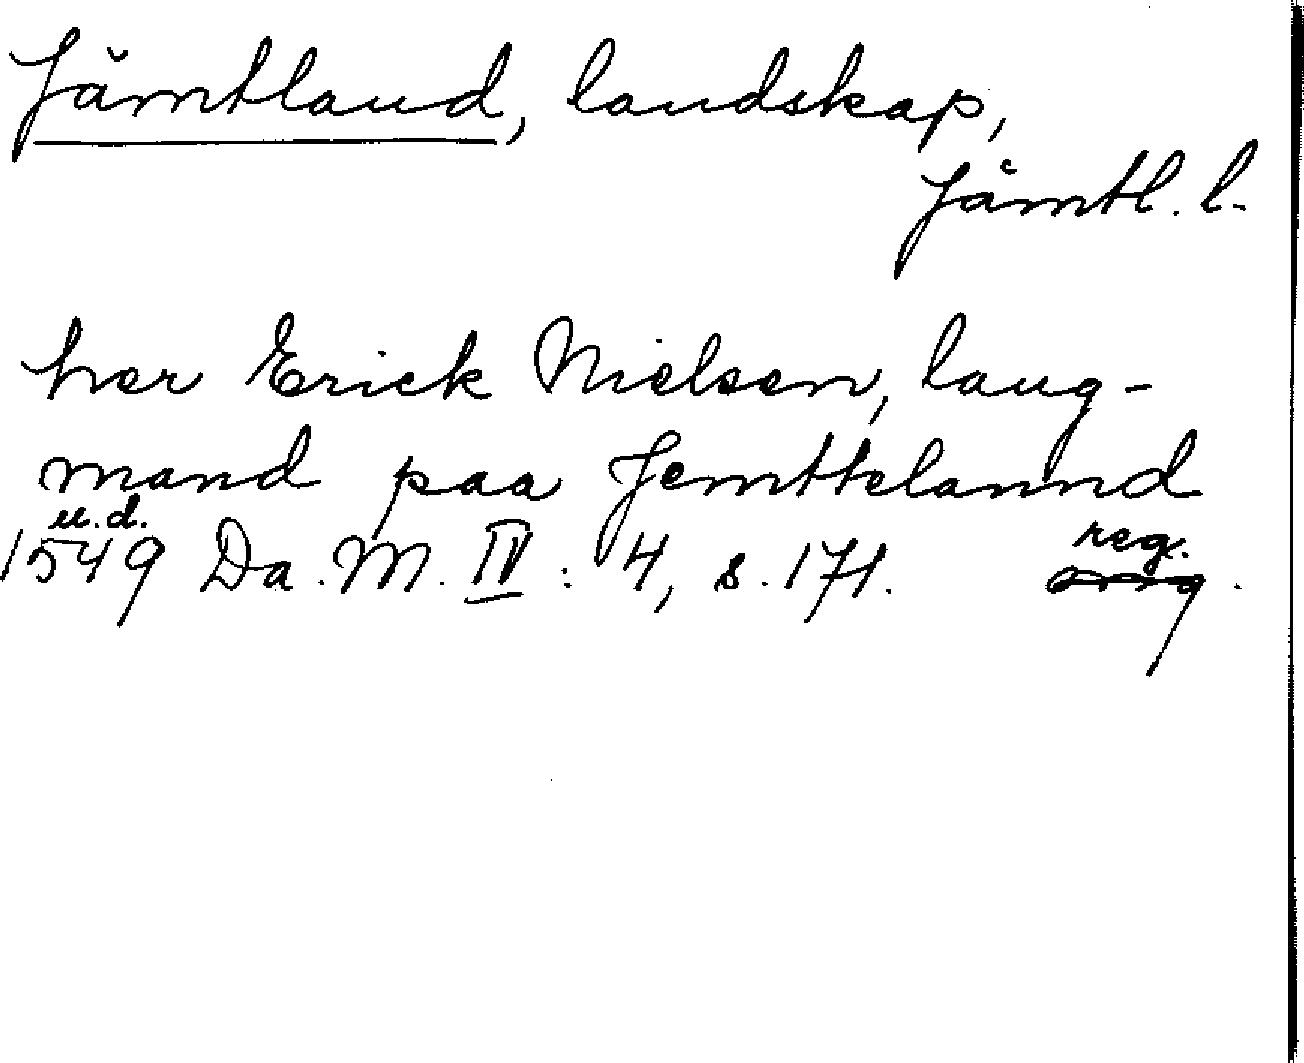 Jämtland, landskap,
Jämtl. l.
her Erick Nielsen, laug-
mand paa Jemttelannd
u.d.
1549 Da. M. IV : 4, s. 171. reg.